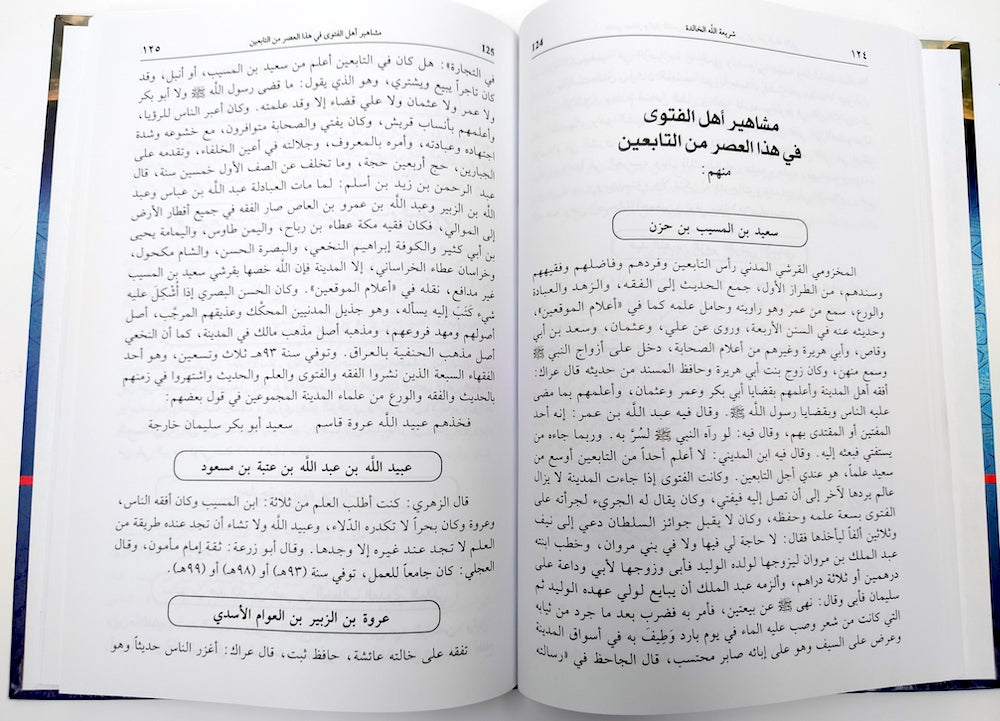 ١٢٤
شريعة اللّه الخالدة
124
مشاهير أهل الفتوى
في هذا العصر من التابعين
منهم:
سعيد بن المسيب بن حزن
المخزومي القرشي المدني رأس التابعين وفردهم وفاضلهم وفقيههم
وسندهم، من الطراز الأول، جمع الحديث إلى الفقه، والزهد والعبادة
والورع، سمع من عمر وهو راويته وحامل علمه كما في «أعلام الموقعين»،
وحديثه عنه في السنن الأربعة، وروى عن علي، وعثمان، وسعد بن أبي
وقاص، وأبي هريرة وغيرهم من أعلام الصحابة، دخل على أزواج النبي ﷺ
وسمع منهن، وكان زوج بنت أبي هريرة وحافظ المسند من حديثه قال عراك:
أفقه أهل المدينة وأعلمهم بقضايا أبي بكر وعمر وعثمان، وأعلمهم بما مضى
عليه الناس وبقضايا رسول اللّه ﷺ. وقال فيه عبد اللّه بن عمر: إنه أحد
المفتين أو المقتدى بهم، وقال فيه: لو رآه النبي ﷺ لسُرَّ به. وربما جاءه من
يستفتي فبعثه إليه. وقال فيه ابن المديني: لا أعلم أحداً من التابعين أوسع من
سعيد علماً، هو عندي أجل التابعين. وكانت الفتوى إذا جاءت المدينة لا يزال
عالم يردها لآخر إلى أن تصل إليه فيفتي، وكان يقال له الجريء لجرأته على
الفتوى بسعة علمه وحفظه، وكان لا يقبل جوائز السلطان دعي إلى نيف
وثلاثين ألفاً ليأخذها فقال: لا حاجة لي فيها ولا في بني مروان، وخطب ابنته
عبد الملك بن مروان ليزوجها لولده الوليد فأبى وزوجها لأبي وداعة على
درهمين أو ثلاثة دراهم، وألزمه عبد الملك أن يبايع لولي عهده الوليد ثم
سليمان فأبى وقال: نهى ﷺ عن بيعتين، فأمر به فضرب بعد ما جرد من ثيابه
التي كانت من شعر وصب عليه الماء في يوم بارد وَطِيفَ به في أسواق المدينة
وعرض على السيف وهو على إبائه صابر محتسب، قال الجاحظ في «رسالته
125
مشاهير أهل الفتوى في هذا العصر من التابعين
١٢٥
في التجارة»: هل كان في التابعين أعلم من سعيد بن المسيب، أو أنبل، وقد
كان تاجراً يبيع ويشتري، وهو الذي يقول: ما قضى رسول اللّه ﷺ ولا أبو بكر
ولا عمر ولا عثمان ولا علي قضاء إلا وقد علمته. وكان أعبر الناس للرؤيا،
وأعلمهم بأنساب قريش، وكان يفتي والصحابة متوافرون، مع خشوعه وشدة
اجتهاده وعبادته، وأمره بالمعروف، وجلالته في أعين الخلفاء، وتقدمه على
الجبارين، حج أربعين حجة، وما تخلف عن الصف الأول خمسين سنة، قال
عبد الرحمن بن زيد بن أسلم: لما مات العبادلة عبد اللّه بن عباس وعبد
اللّه بن الزبير وعبد اللّه بن عمرو بن العاص صار الفقه في جميع أقطار الأرض
إلى الموالي، فكان فقيه مكة عطاء بن رباح، واليمن طاوس، واليمامة يحيى
بن أبي كثير والكوفة إبراهيم النخعي، والبصرة الحسن، والشام مكحول،
وخراسان عطاء الخراساني، إلا المدينة فإن اللّه خصها بقرشي سعيد بن المسيب
غير مدافع، نقله في «أعلام الموقعين». وكان الحسن البصري إذا أُشْكِلَ عليه
شيء كَتَبَ إليه يسأله، وهو جذيل المدنيين المحكّك وعذيقهم المرجّب، أصل
أصولهم ومهد فروعهم، ومذهبه أصل مذهب مالك في المدينة، كما أن النخعي
أصل مذهب الحنفية بالعراق. وتوفي سنة ٩٣هـ ثلاث وتسعين، وهو أحد
الفقهاء السبعة الذين نشروا الفقه والفتوى والعلم والحديث واشتهروا في زمنهم
بالحديث والفقه والورع من علماء المدينة المجموعين في قول بعضهم:
فخذهم عبيد اللّه عروة قاسم سعيد أبو بكر سليمان خارجة
عبيد اللّه بن عبد اللّه بن عتبة بن مسعود
قال الزهري: كنت أطلب العلم من ثلاثة: ابن المسيب وكان أفقه الناس،
وعروة وكان بحراً لا تكدره الدِّلاء، وعبيد اللّه ولا تشاء أن تجد عنده طريقة من
العلم لا تجد عند غيره إلا وجدها. وقال أبو زرعة: ثقة إمام مأمون، وقال
العجلي: كان جامعاً للعمل، توفي سنة (٩٣هـ) أو (٩٨هـ) أو (٩٩هـ).
عروة بن الزبير بن العوام الأسدي
تفقه على خالته عائشة، حافظ ثبت، قال عراك: أغزر الناس حديثاً وهو